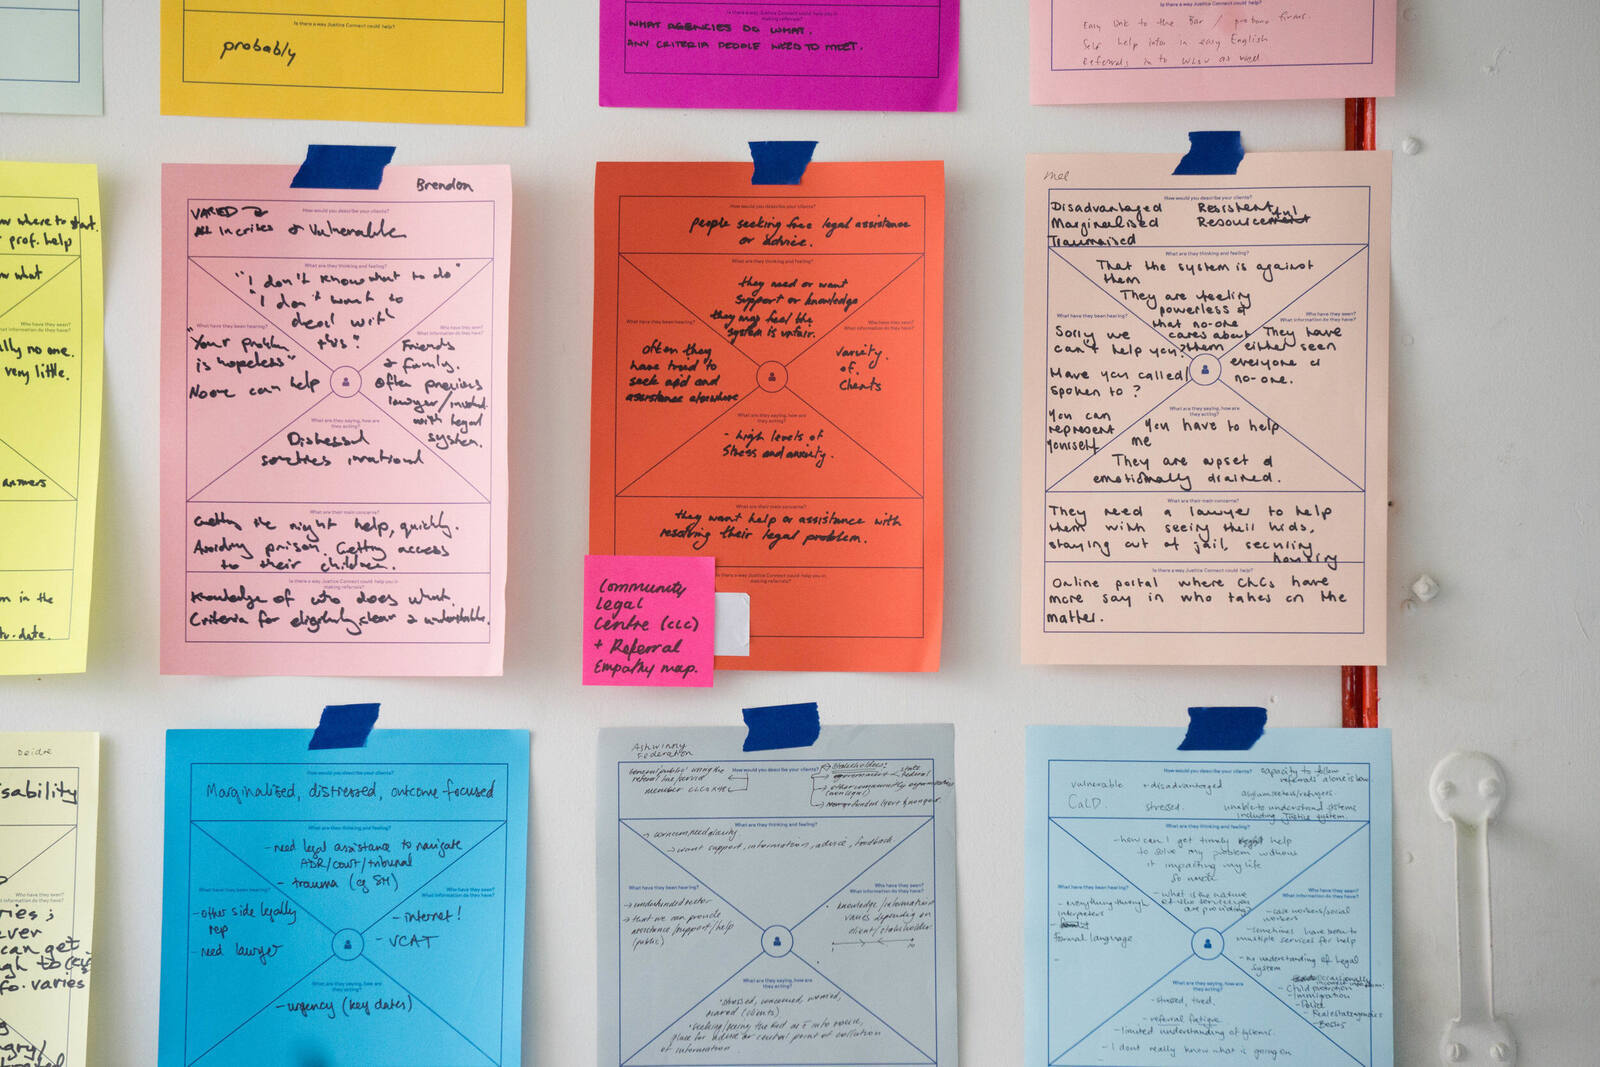 Is there a way Justice Connect could help?
probably
Is there a way Justice Connect could help you in
making referrals?
WHAT AGENCIES DO WHAT.
ANY CRITERIA PEOPLE NEED TO MEET.
Is there a way Justice Connect could help?
Easy link to the Bar / probono firms.
Self help infor in easy English
Referrals in to WLSV as well
where to start.
prof. help
what
no one.
very little.
answers
in the
date.
Brendon
How would you describe your clients?
VARIED
All In crises & Vulnerable
What are they thinking and feeling?
"I don't know what to do"
"I don't want to
deal with
this"
What have they been hearing?
"Your problem
is hopeless"
No one can help
Who have they seen?
What information do they have?
Friends
& family.
Often previous
lawyer/involved
with legal
system.
What are they saying, how are
they acting?
Distressed
sometimes irrational
What are their main concerns?
Getting the right help, quickly.
Avoiding prison. Getting access
to their children.
Is there a way Justice Connect could help you in
making referrals?
Knowledge of who does what.
Criteria for eligibility clear & understandable.
How would you describe your clients?
people seeking free legal assistance
or advice.
What are they thinking and feeling?
they need or want
support or knowledge
they may feel the
system is unfair.
What have they been hearing?
often they
have tried to
seek aid and
assistance elsewhere
Who have they seen?
What information do they have?
Variety
of
Clients
What are they saying, how are
they acting?
- high levels of
stress and anxiety.
What are their main concerns?
they want help or assistance with
resolving their legal problem.
Is there a way Justice Connect could help you in
making referrals?
Community
Legal
Centre (CLC)
+ Referral
Empathy map.
Mel
How would you describe your clients?
Disadvantaged Resistent
Marginalised Resourceful
Traumatised
What are they thinking and feeling?
That the system is against
them
They are feeling
powerless &
that no-one
cares about
them
What have they been hearing?
Sorry we
can't help you.
Have you called/
spoken to?
You can
represent
yourself
Who have they seen?
What information do they have?
They have
either seen
everyone or
no-one.
What are they saying, how are
they acting?
You have to help
me
They are upset &
emotionally drained.
What are their main concerns?
They need a lawyer to help
them with seeing their kids,
staying out of jail, securing
housing
Is there a way Justice Connect could help?
Online portal where CLCs have
more say in who takes on the
matter.
Deidre
disability
ever
can get
varies
How would you describe your clients?
Marginalised, distressed, outcome-focused
What are they thinking and feeling?
- need legal assistance to navigate
ADR/court/tribunal
- trauma (eg SH)
What have they been hearing?
- other side legally
rep
- need lawyer
Who have they seen?
What information do they have?
- internet!
- VCAT
What are they saying, how are
they acting?
- urgency (key dates)
Ashwinny
Federation
How would you describe your clients?
general public using the
referral line/service
member CLCs
Stakeholders:
government
state
federal
other community organisations
(non legal)
What are they thinking and feeling?
want support, information, advice, feedback
What have they been hearing?
underfunded sector
that we can provide
assistance/support/help
(public)
Who have they seen?
What information do they have?
knowledge/information
varies depending on
client/stakeholder
What are they saying, how are
they acting?
stressed, concerned, worried,
(clients)
place for advice or central point of collation
of information
How would you describe your clients?
vulnerable + disadvantaged
CaLD. stressed.
capacity to follow
referrals alone is low
asylum seekers/refugees.
unable to understand systems
including Justice system.
What are they thinking and feeling?
- how can I get timely help
to solve my problem without
it impacting my life
so much
- what is the nature
of the service you
are providing?
What have they been hearing?
- everything through
interpreters
formal language
Who have they seen?
What information do they have?
- case workers/social
workers
- sometimes have been to
multiple services for help
- no understanding of legal
system
occasionally
- Child protection
- Immigration
- Police
- Real estate agencies
- Banks
What are they saying, how are
they acting?
- stressed, tired,
- referral fatigue
- limited understanding of systems.
- I dont really know what is going on